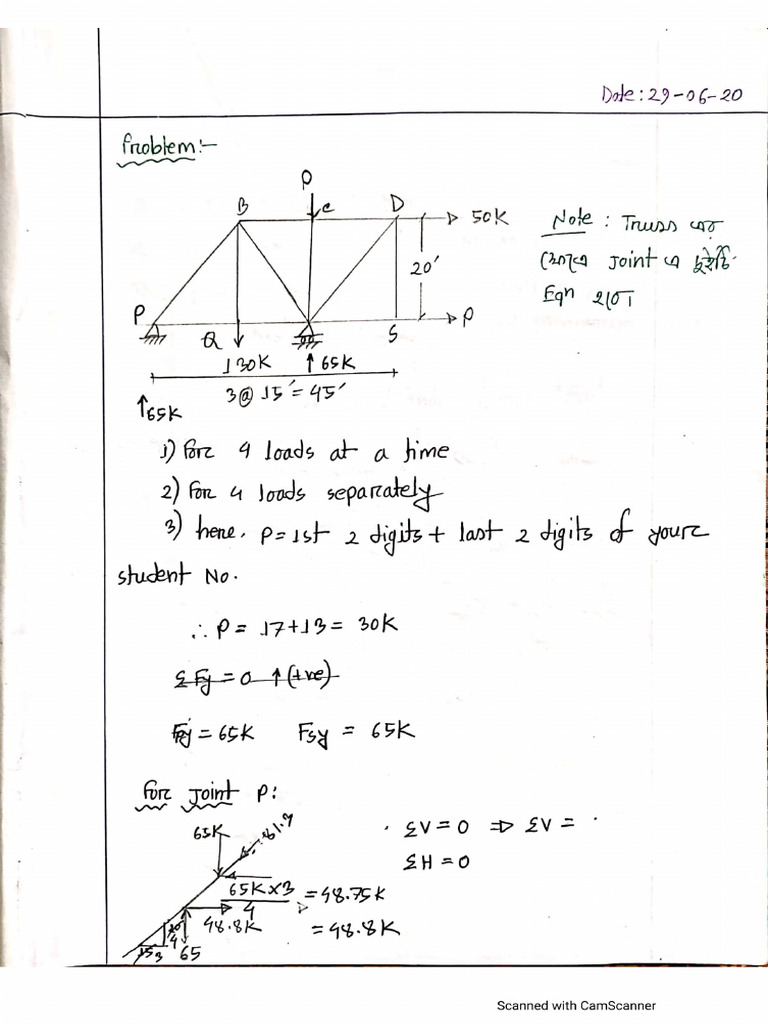 Date: 29-06-20
Problem:-
P
B
C
D
50K
20'
Note: Truss এর
কোনো joint এ দুইটি
Eqn হবে
P
Q
S
P
130K
↑65K
3@ 15' = 45'
↑65K
1) for 4 loads at a time
2) for 4 loads separately
3) here, P = 1st 2 digits + last 2 digits of your
student No.
∴ P = 17+13 = 30K
ΣFy = 0 ↑(+ve)
= 65K Fsy = 65K
for joint P:
65K
81.3
ΣV = 0 ⇒ ΣV =
ΣH = 0
65K×3
4
= 48.75K
48.8K
= 48.8K
20
4
15
3
65
Scanned with CamScanner